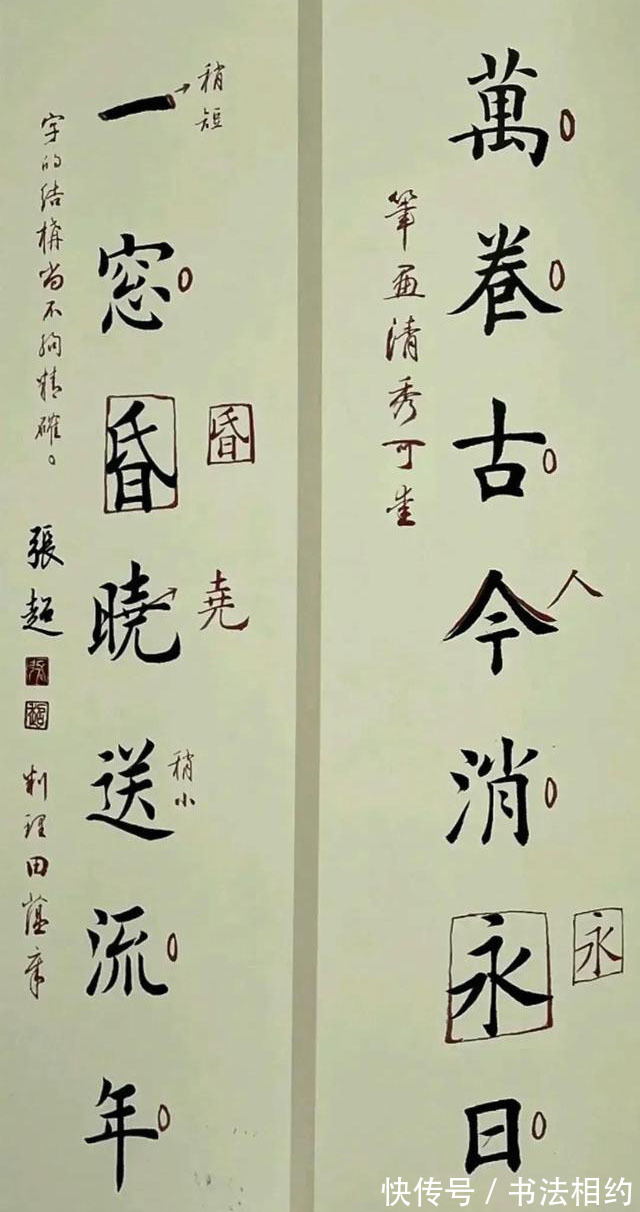 萬卷古今消永日
人
永
筆画清秀可生
一窓昏曉送流年
稍短
昏
堯
稍小
字的结構尚不夠精確。
張超
田蘊章
快传号/书法相约